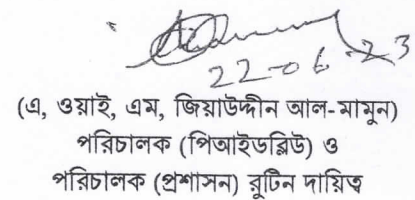 22-06-23
(এ, ওয়াই, এম, জিয়াউদ্দীন আল-মামুন)
পরিচালক (পিআইডব্লিউ) ও
পরিচালক (প্রশাসন) রুটিন দায়িত্ব